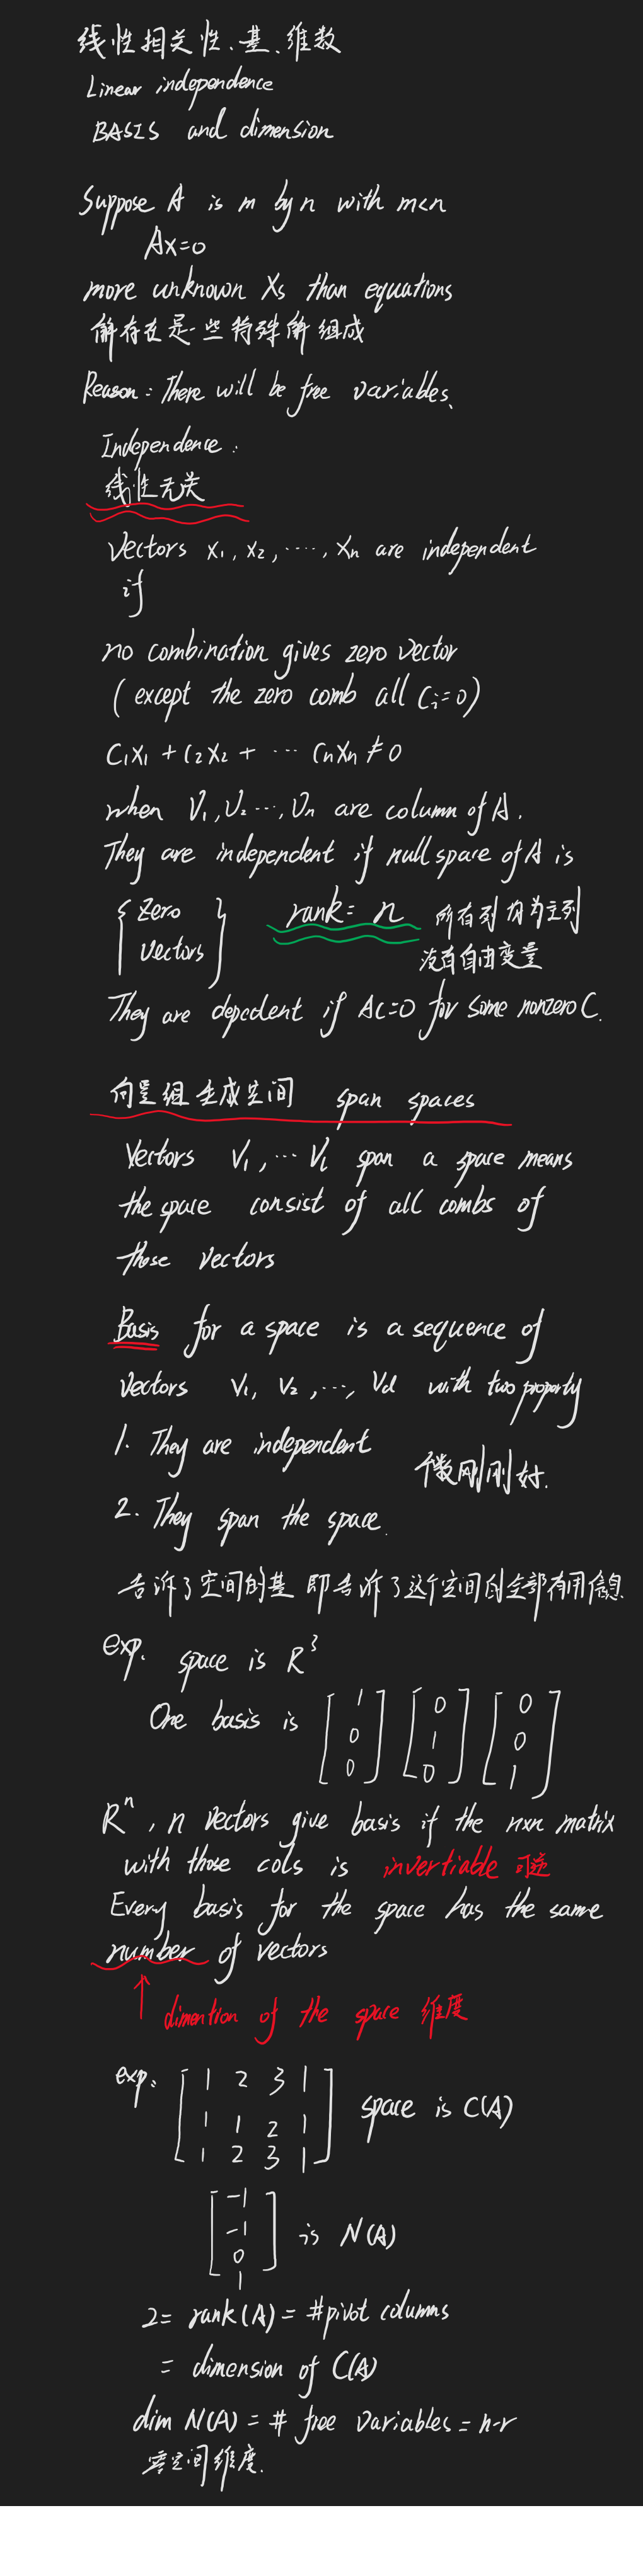 线性相关性、基、维数
Linear independence
BASIS and dimension
Suppose A is m by n with m<n
Ax=0
more unknown Xs than equations
解存在是一些特殊解组成
Reason: There will be free variables.
Independence:
线性无关
Vectors x₁, x₂, ⋯, xₙ are independent
if
no combination gives zero vector
(except the zero comb all Cᵢ=0)
C₁x₁ + C₂x₂ + ⋯ Cₙxₙ ≠ 0
when V₁, V₂ ⋯, Vₙ are column of A.
They are independent if null space of A is
{zero vectors} rank = n 所有列均为主列
没有自由变量
They are depedent if Ac=0 for some nonzero C.
向量组生成空间 span spaces
Vectors V₁, ⋯ Vl span a space means
the space consist of all combs of
those vectors
Basis for a space is a sequence of
vectors V₁, V₂, ⋯, Vd with two property
1. They are independent
个数刚刚好.
2. They span the space.
告诉了空间的基 即告诉了这个空间的全部有用信息.
exp. space is R³
One basis is [1 0 0] [0 1 0] [0 0 1]
Rⁿ, n vectors give basis if the nxn matrix
with those cols is invertiable 可逆
Every basis for the space has the same
number of vectors
↑ dimention of the space 维度
exp: [1 2 3 1
1 1 2 1 space is C(A)
1 2 3 1]
[-1
-1
0 is N(A)
1]
2 = rank(A) = #pivot columns
= dimension of C(A)
dim N(A) = # free variables = n-r
零空间维度.